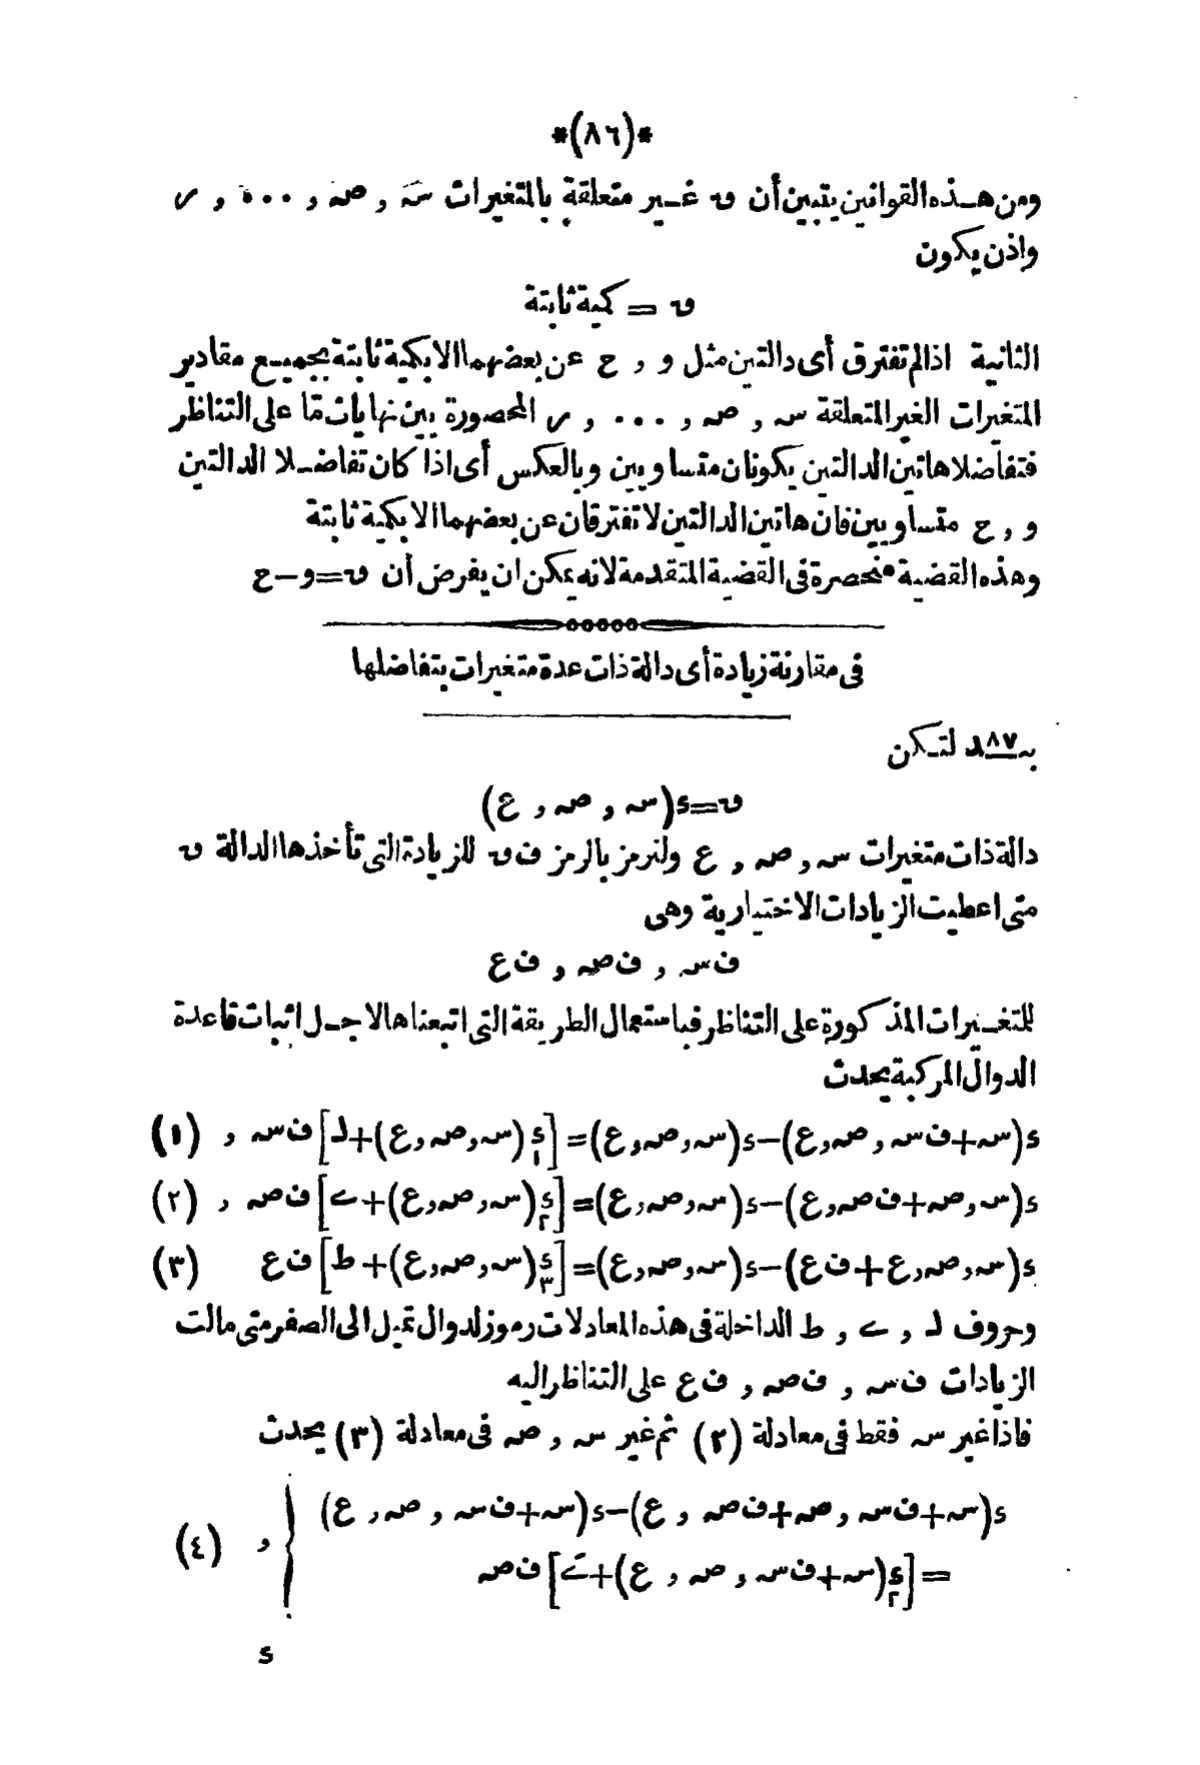 *(٨٦)*
ومن هذه القوانين يتبين أن ق غير متعلقة بالمتغيرات سَہ , صَہ , ٠٠٠ , ر
واذن يكون
ق = كمية ثابتة
الثانية اذا لم تفترق أى دالتين مثل و , ح عن بعضهما الا بكمية ثابتة بجميع مقادير
المتغيرات الغير المتعلقة سہ , صہ , ٠٠٠ , ر المحصورة بين نهايات مّا على التناظر
فتفاضلا هاتين الدالتين يكونان متساويين وبالعكس أى اذا كان تفاضلا الدالتين
و , ح متساويين فان هاتين الدالتين لا تفترقان عن بعضهما الا بكمية ثابتة
وهذه القضية منحصرة فى القضية المتقدمة لانه يمكن ان يفرض أن ق=و−ح
فى مقارنة زيادة أى دالة ذات عدة متغيرات بتفاضلها
بـ٨٧ـد لتكن
ق=د(سہ , صہ , ع)
دالة ذات متغيرات سہ , صہ , ع ولنرمز بالرمز ف ق للزيادة التى تأخذها الدالة ق
متى اعطيت الزيادات الاختيارية وهى
ف سہ , ف صہ , ف ع
للتغيرات المذكورة على التناظر فباستعمال الطريقة التى اتبعناها لاجل اثبات قاعدة
الدوالّ المركبة يحدث
د(سہ+ف سہ , صہ,ع)−د(سہ,صہ,ع)=[د١(سہ,صہ,ع)+لـ]ف سہ , (١)
د(سہ,صہ+ف صہ,ع)−د(سہ,صہ,ع)=[د٢(سہ,صہ,ع)+ے]ف صہ , (٢)
د(سہ,صہ,ع+ف ع)−د(سہ,صہ,ع)=[د٣(سہ,صہ,ع)+ط]ف ع (٣)
وحروف لـ , ے , ط الداخلة فى هذه المعادلات رموز لدوال تميل الى الصفر متى مالت
الزيادات ف سہ , ف صہ , ف ع على التناظر اليه
فاذا غير سہ فقط فى معادلة (٢) ثم غير سہ , صہ فى معادلة (٣) يحدث
د(سہ+ف سہ , صہ+ف صہ , ع)−د(سہ+ف سہ , صہ , ع)
=[د٢(سہ+ف سہ , صہ , ع)+ےَ]ف صہ } , (٤)
د